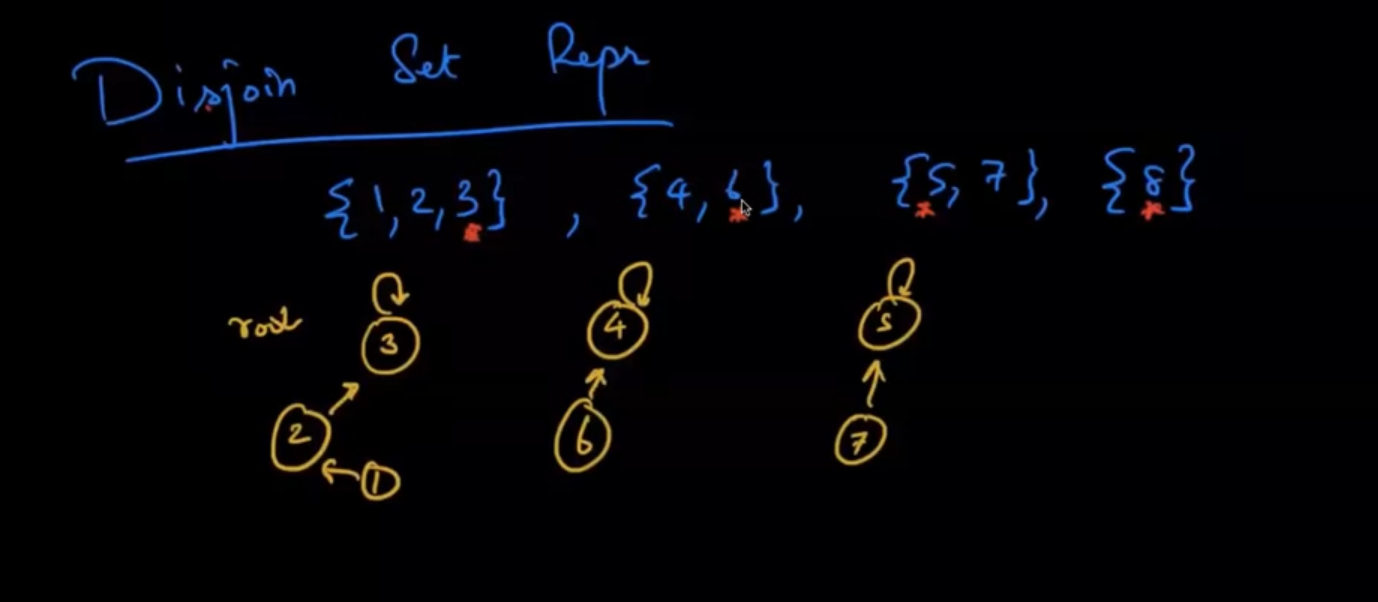 Disjoin Set Repr
{1, 2, 3} , {4, 6}, {5, 7}, {8}
root
3 4 5
2 6 7
1